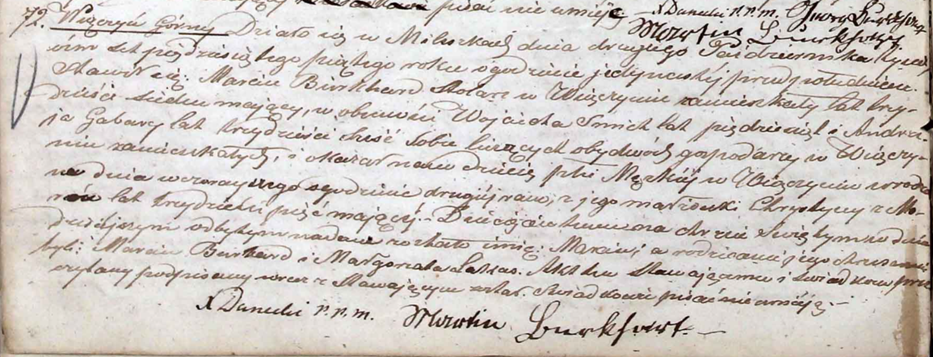 pisać nie umieją X Danecki P.P.M.
72. Wiączyń Górny Działo się w Mileszkach dnia drugiego Października tysiąc
ośm set pięćdziesiątego piątego roku o godzinie jedynastej przed południem.
Stawił się: Marcin Burkhard Stolarz w Wiączyniu zamieszkały lat trzy-
dzieści siedm mający, w obecności Wojciecha Smich lat pięćdziesiąt i Andrze-
ja Gabary lat trzydzieści sześć sobie liczących obydwóch gospodarzy w Wiączy-
niu zamieszkałych, i okazał nam dziecię płci Męzkiej w Wiączyniu urodzo-
ne dnia wczorajszego o godzinie drugiej rano, z jego małżonki Chrystyny z
lat trzydzieści pięć mającej. Dziecięciu temu na chrzcie Świętym w dniu
dzisiejszym odbytym nadane zostało imię: Marcin, a rodzicami jego chrzestnemi
byli: Marcin Burkhard i Małgorzata. Akt ten Stawającemu i Świadkom prze-
czytany podpisany wraz z Stawającym został. Świadkowie pisać nie umieją.
X Danecki P.P.M. Martin Burkhart